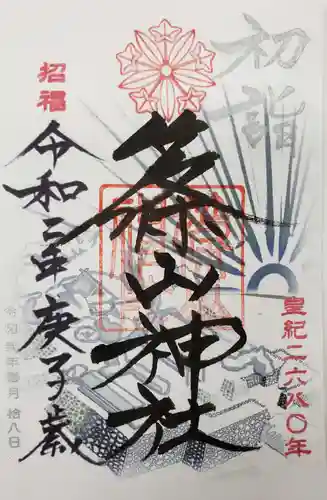 初詣
皇紀二六八〇年
篠山神社
招福
令和二年庚子歳
令和弐年壱月拾八日